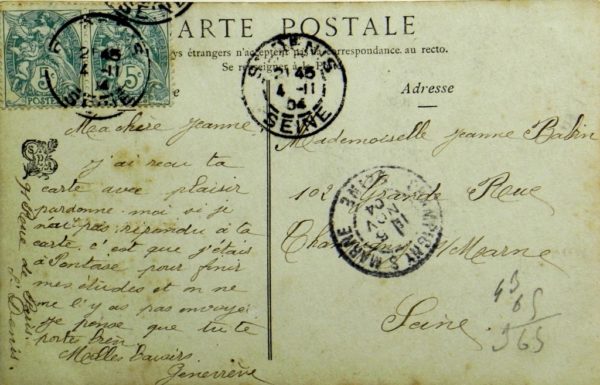 CARTE POSTALE
ys étrangers n'acceptent pas la correspondance au recto.
Se renseigner à la P
ST DENIS
21 45
4 -11
04
SEINE
ST DENIS
21 45
4 -11
04
SEINE
5c
5c
POSTES
Adresse
Ma chère Jeanne
J'ai recu ta
carte avec plaisir
pardonne moi si je
n'ai pas répondu à ta
carte c'est que j'étais
à Pontoise pour finir
mes études et on ne
me l'y as pas envoyé
Je pense que tu te
portes bien
Milles baisirs
Geneviève
9 Rue de Paris
St Denis.
Mademoiselle Jeanne
102 Grande Rue
Champigny s/Marne
Seine
CHAMPIGNY S. MARNE
5
NOV
04
SEINE
43
65
965